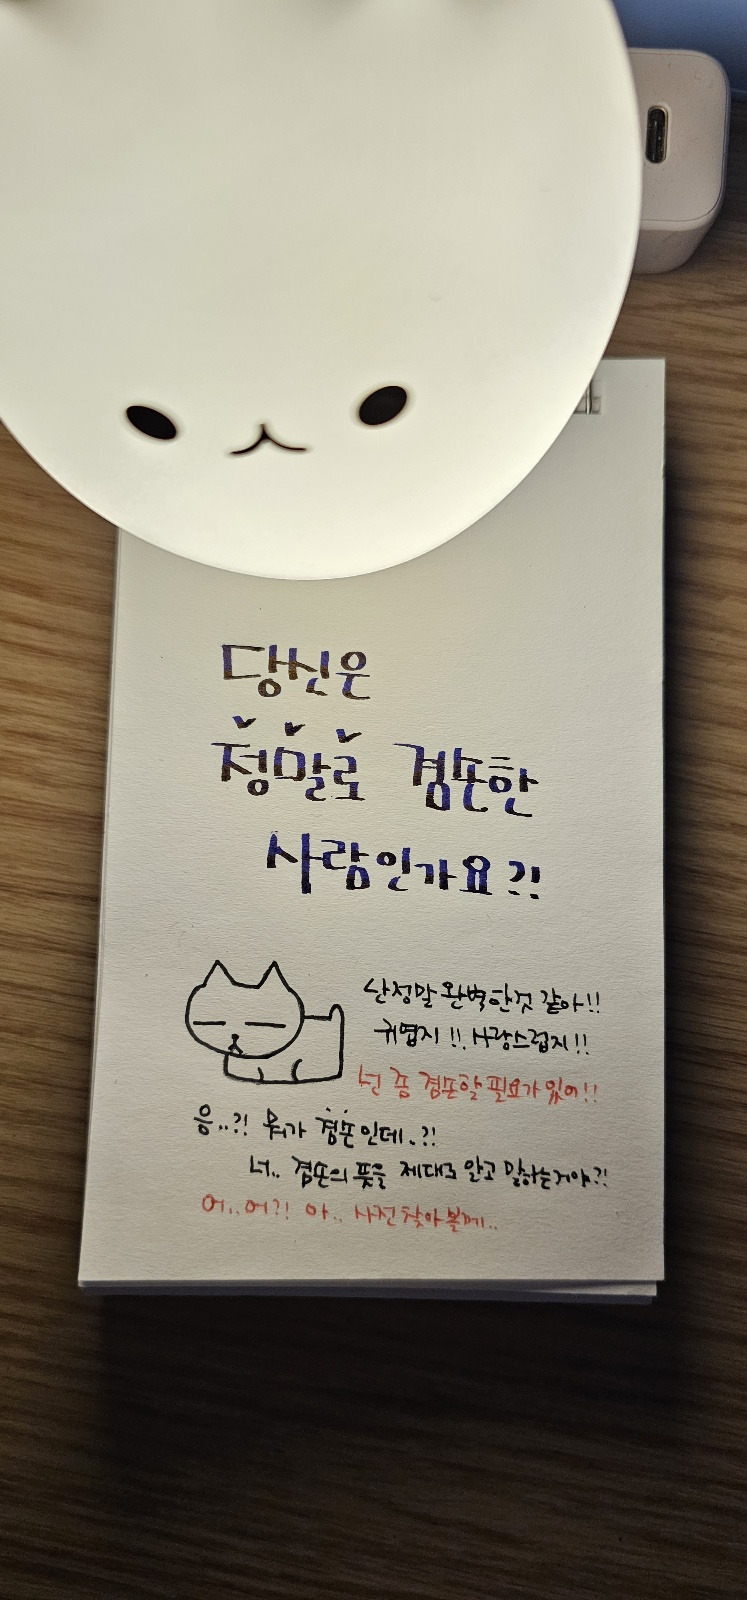 당신은
정말로 겸손한
사람인가요?!
난 정말 완벽한것 같아!!
귀엽지!! 사랑스럽지!!
넌 좀 겸손할 필요가 있어!!
응..?! 뭐가 겸손인데.?!
너.. 겸손의 뜻을 제대로 알고 말하는거야?!
어..어?! 아.. 사전 찾아볼께..